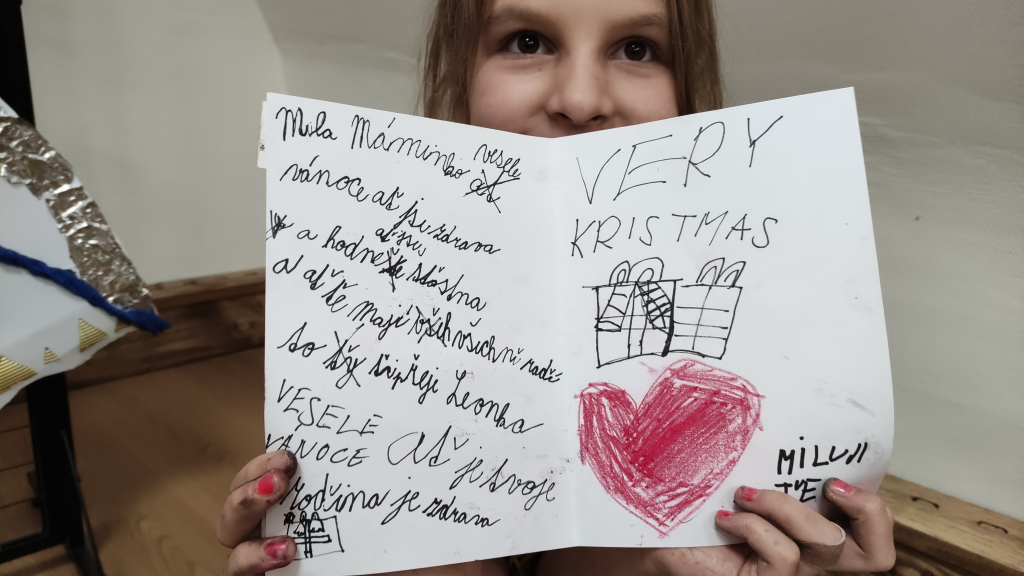 Mila Máminko vesele
vánoce ať jsi zdrava
a hodně šťastna
a ať tě mají všichni radi
to ti přeji Leonka
VESELE
VÁNOCE Ať je tvoje
rodina je zdrava
VERY
KRISTMAS
MILUJI
TĚ